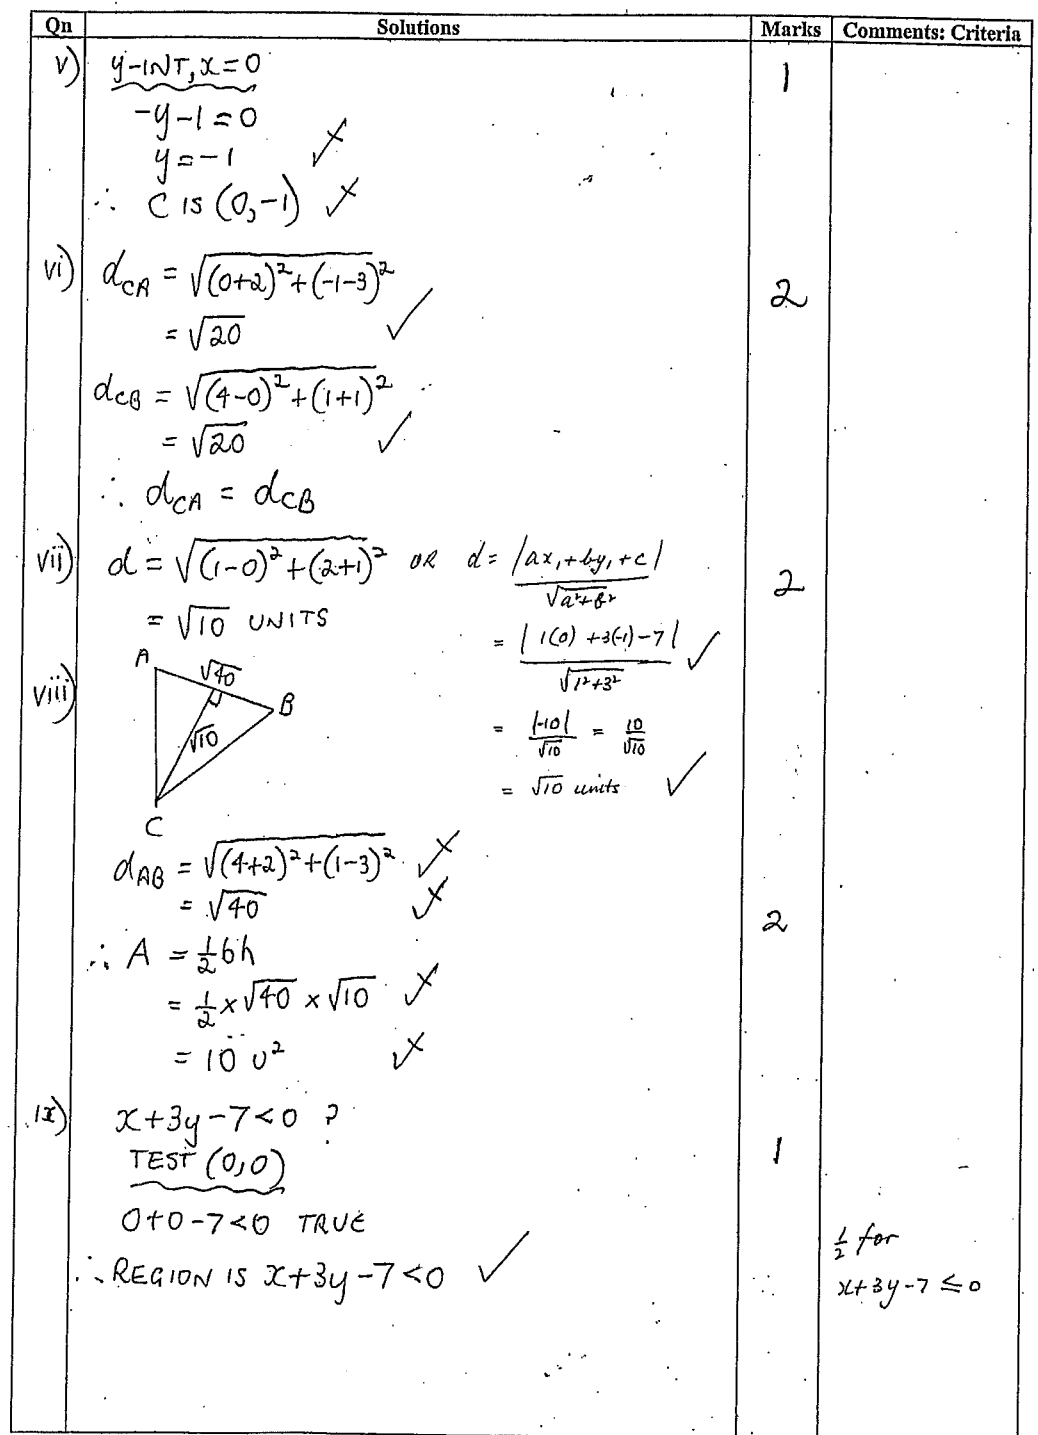 Qn Solutions Marks Comments: Criteria
v) y-INT, x=0 1
-y-1=0
y=-1 ✓
∴ C IS (0,-1) ✓
vi) d_CA = √((0+2)²+(-1-3)²) 2
= √20 ✓
d_CB = √((4-0)²+(1+1)²)
= √20 ✓
∴ d_CA = d_CB
vii) d = √((1-0)²+(2+1)²) OR d = |ax₁+by₁+c| / √(a²+b²) 2
= √10 UNITS
= |1(0)+3(-1)-7| / √(1²+3²) ✓
= |-10|/√10 = 10/√10
= √10 units ✓
viii)
A √40 B
√10
C
d_AB = √((4+2)²+(1-3)²) ✓
= √40 ✓
2
∴ A = ½bh
= ½×√40×√10 ✓
= 10 U² ✓
ix) x+3y-7<0 ? 1
TEST (0,0)
0+0-7<0 TRUE
∴ REGION IS x+3y-7<0 ✓
½ for
x+3y-7≤0